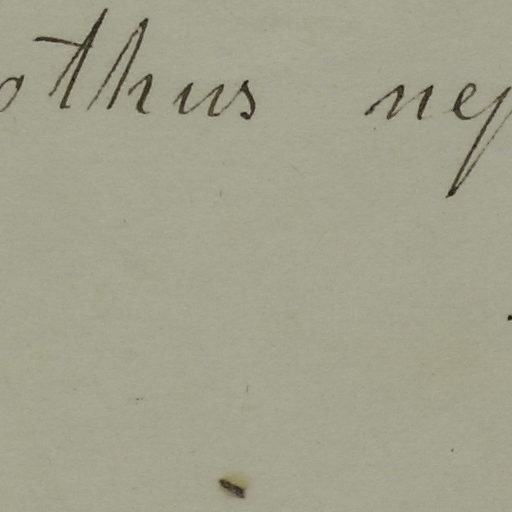 othus nep